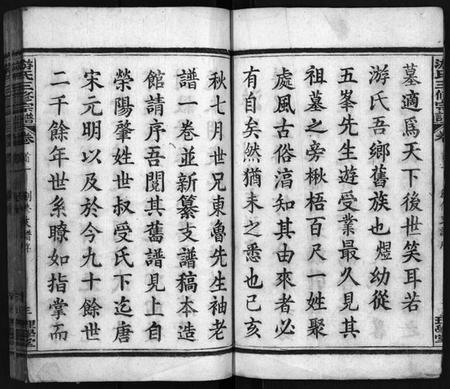 墓適爲天下後世笑耳若
游氏吾鄉舊族也煜幼從
五峯先生遊受業最久見其
祖墓之旁楸梧百尺一姓聚
處風古俗湻知其由來者必
有自矣然猶未之悉也己亥
秋七月世兄東魯先生袖老
譜一卷並新纂支譜稿本造
館請序吾閱其舊譜見上自
榮陽肇姓世叔受氏下迄唐
宋元明以及於今九十餘世
二千餘年世系瞭如指掌而